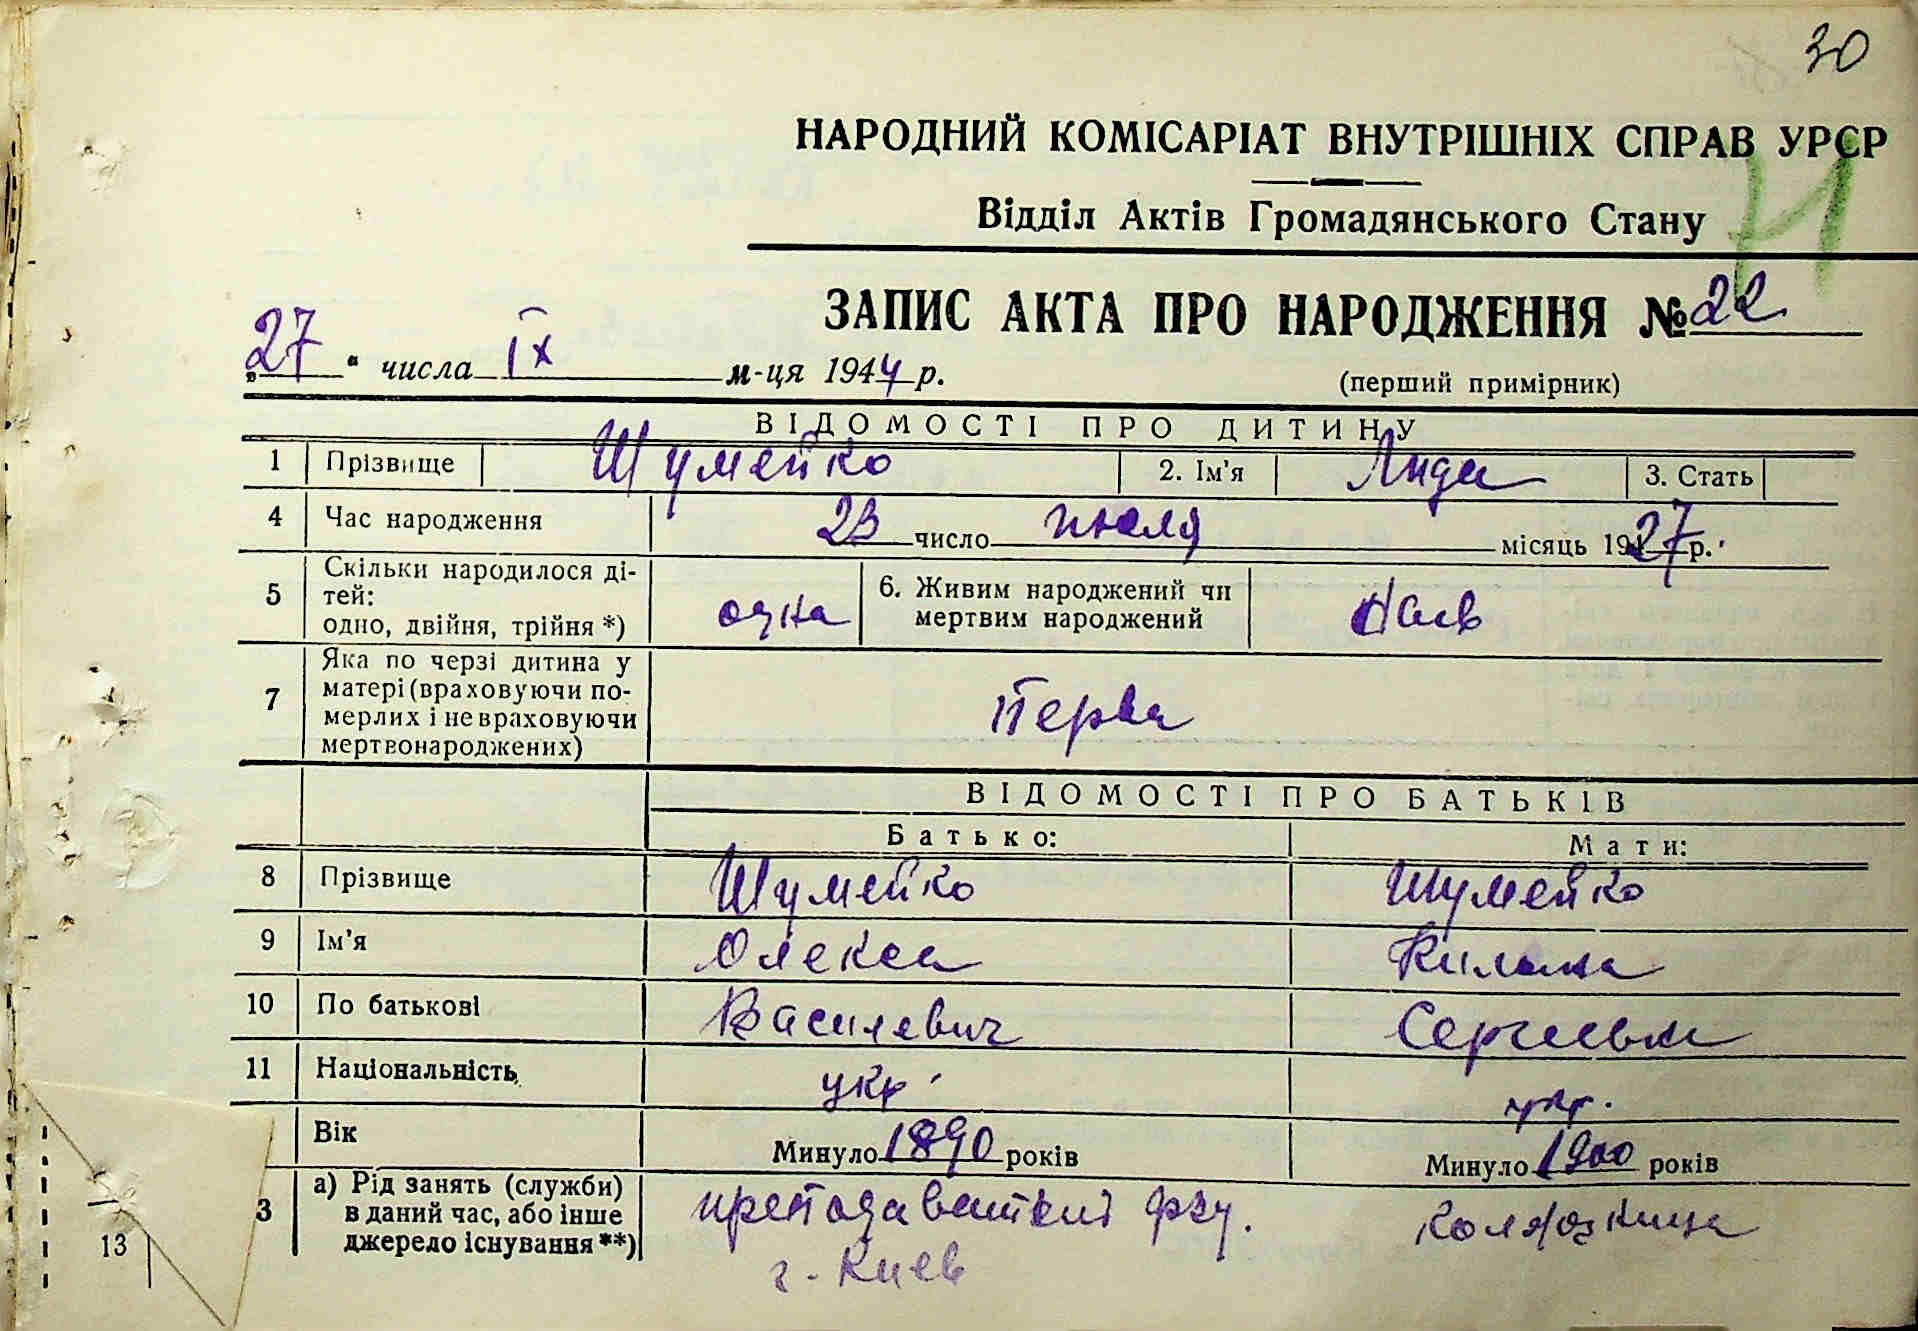 30
НАРОДНИЙ КОМІСАРІАТ ВНУТРІШНІХ СПРАВ УРСР
Відділ Актів Громадянського Стану
ЗАПИС АКТА ПРО НАРОДЖЕННЯ № 22
„27“ числа ІХ м-ця 1944 р.
(перший примірник)
ВІДОМОСТІ ПРО ДИТИНУ
1 Прізвище Шумейко 2. Ім'я Лида 3. Стать
4 Час народження 23 число июля місяць 1927 р.
5 Скільки народилося ді-
тей:
одно, двійня, трійня *) одна
6. Живим народжений чи
мертвим народжений
7 Яка по черзі дитина у
матері (враховуючи по-
мерлих і не враховуючи
мертвонароджених) Перва
ВІДОМОСТІ ПРО БАТЬКІВ
Батько: Мати:
8 Прізвище Шумейко Шумейко
9 Ім'я Олекса Килина
10 По батькові Василевич
11 Національність укр. укр.
Вік Минуло 1890 років Минуло 1900 років
3 а) Рід занять (служби)
в даний час, або інше
джерело існування **) преподаватель фзу.
г. Киев
13